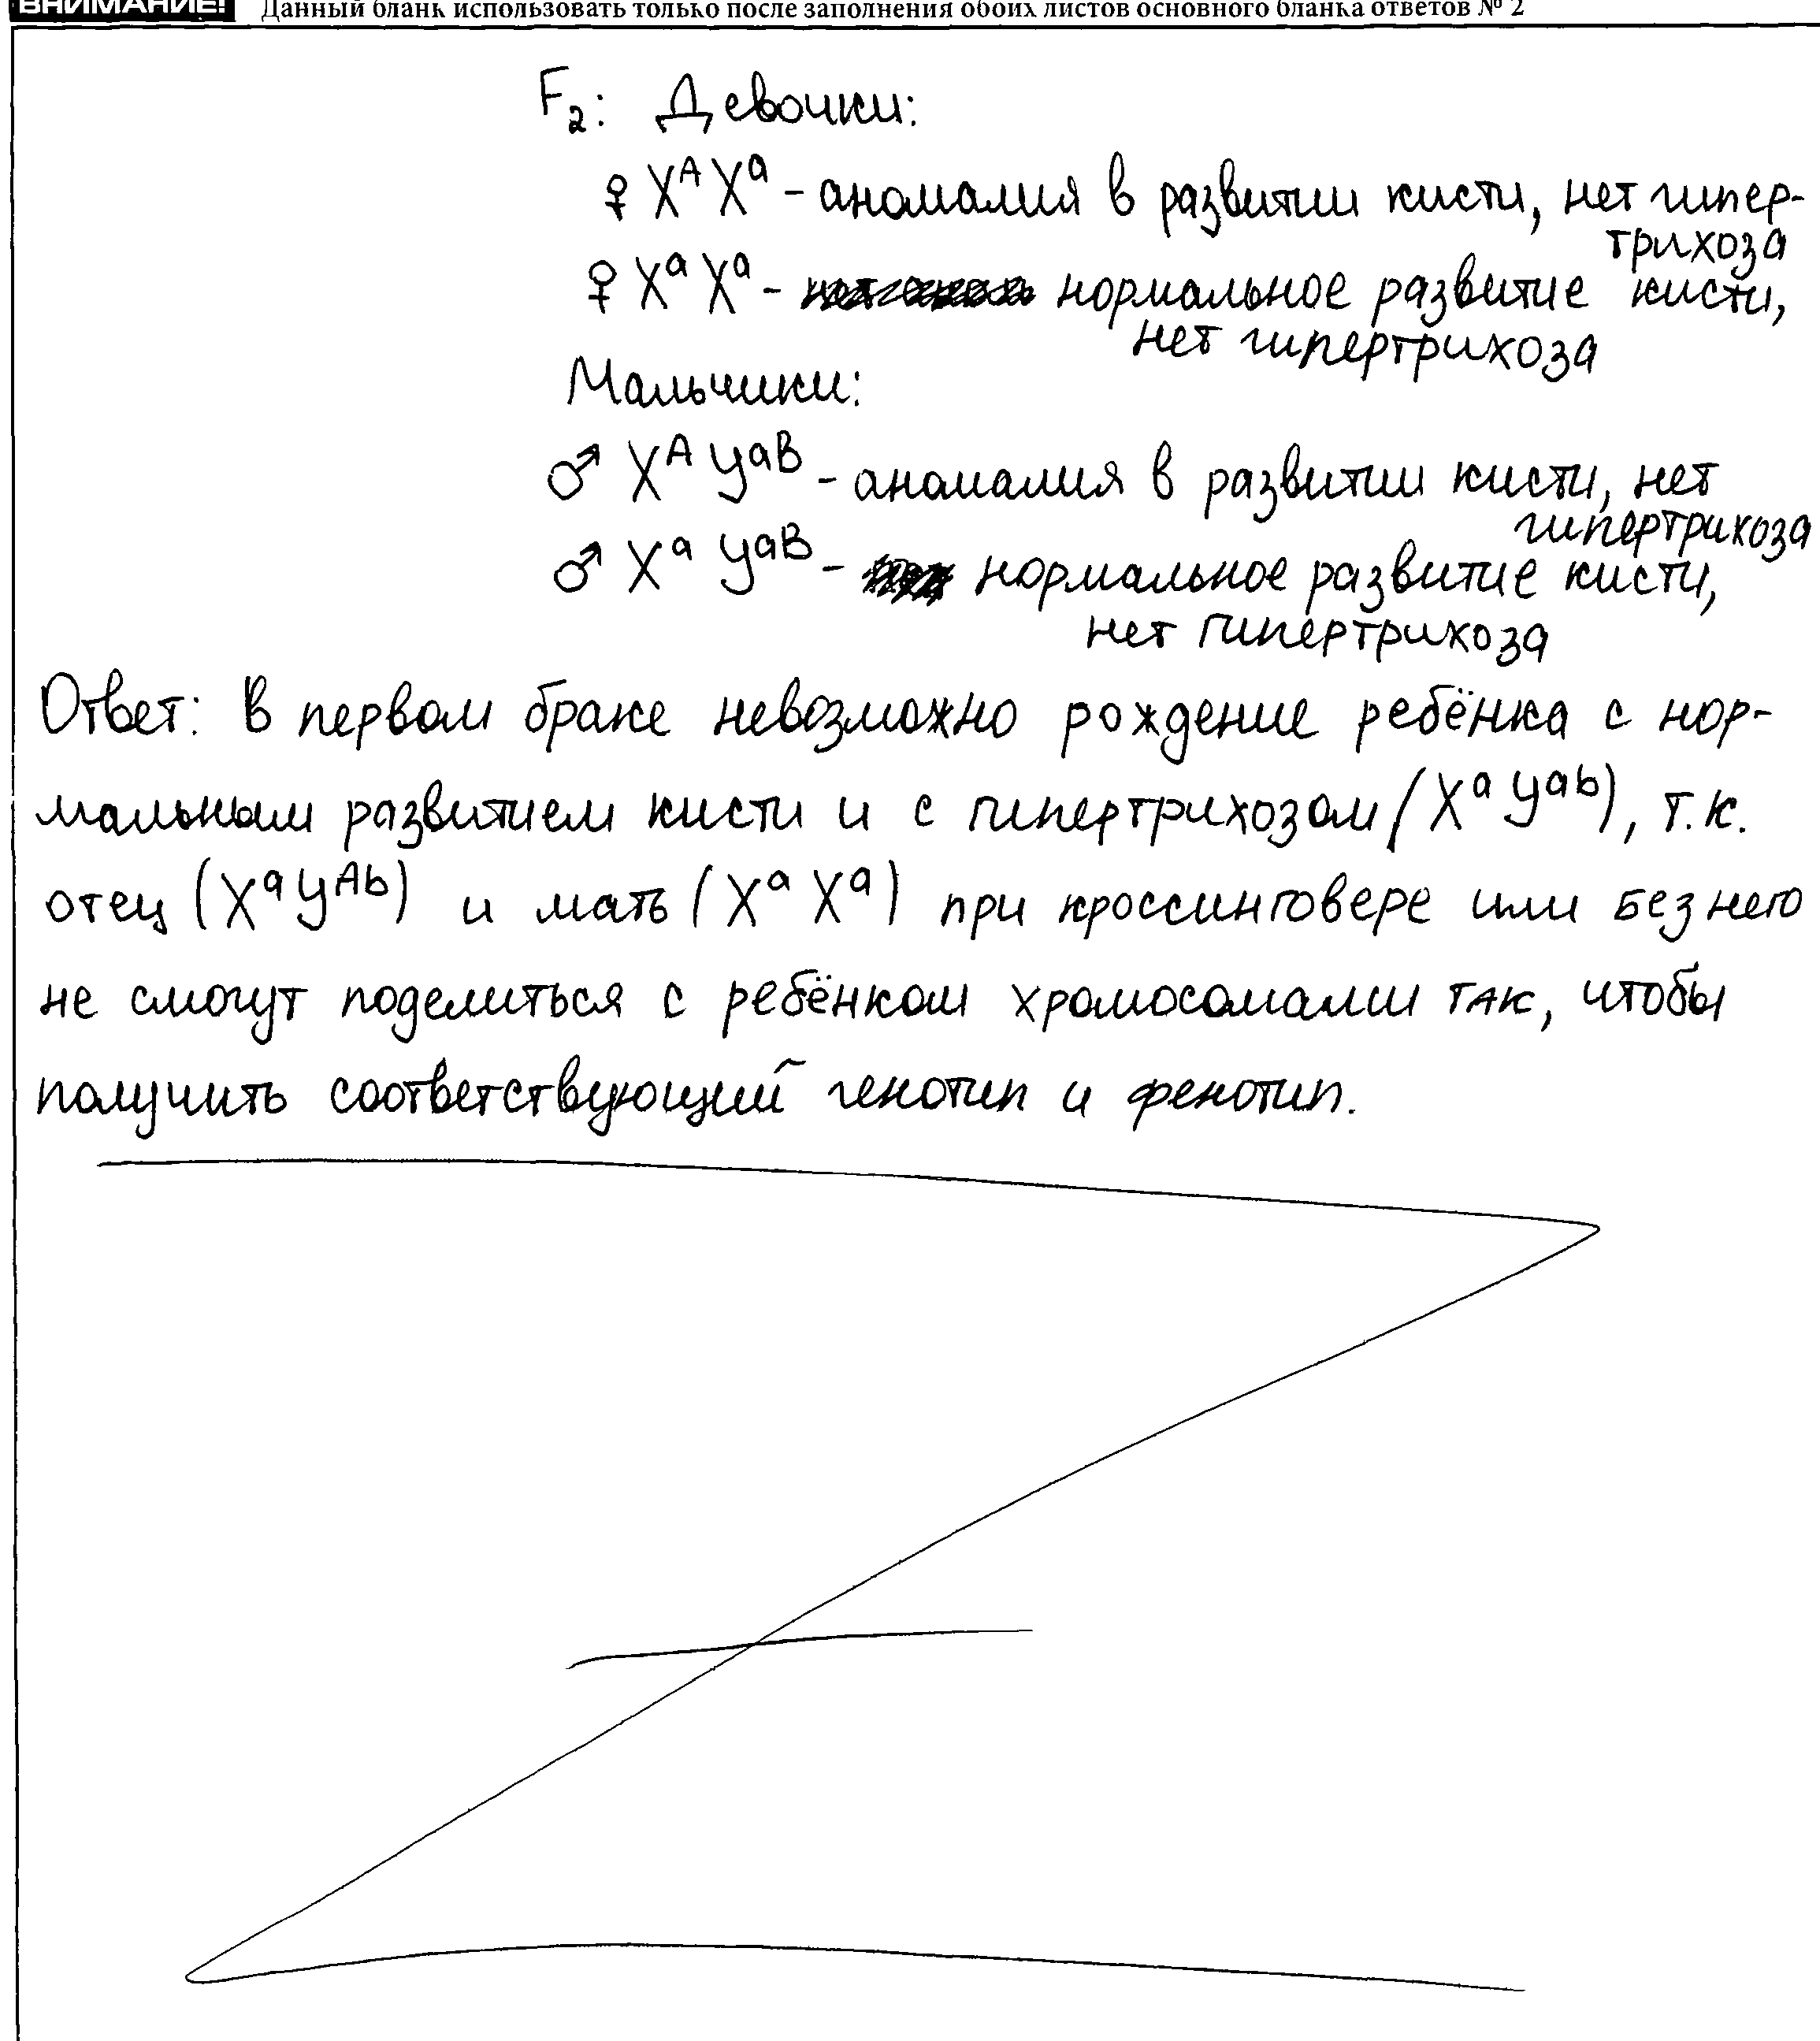 ВНИМАНИЕ! Данный бланк использовать только после заполнения обоих листов основного бланка ответов № 2
F₂: Девочки:
♀ Xᴬ Xᵃ - аномалия в развитии кисти, нет гипер-
трихоза
♀ Xᵃ Xᵃ - нормальное развитие кисти,
нет гипертрихоза
Мальчики:
♂ Xᴬ Yᵃᴮ - аномалия в развитии кисти, нет
гипертрихоза
♂ Xᵃ Yᵃᴮ - нормальное развитие кисти,
нет гипертрихоза
Ответ: В первом браке невозможно рождение ребёнка с нор-
мальным развитием кисти и с гипертрихозом (Xᵃ Yᵃᵇ), т.к.
отец (Xᵃ Yᴬᵇ) и мать (Xᵃ Xᵃ) при кроссинговере или без него
не смогут поделиться с ребёнком хромосомами так, чтобы
получить соответствующий генотип и фенотип.